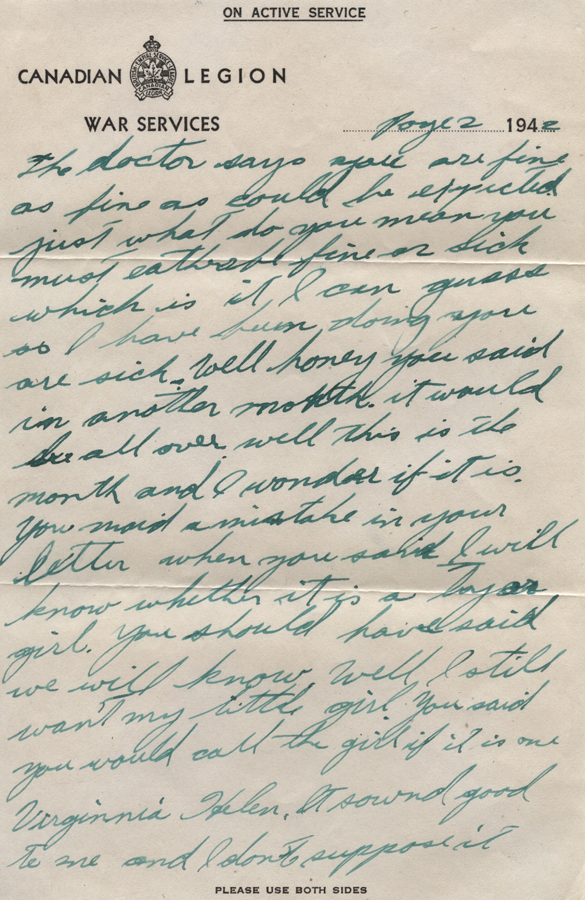 ON ACTIVE SERVICE
CANADIAN LEGION
WAR SERVICES
page 2 1942
The doctor says you are fine
as fine as could be expected
just what do you mean you
must be fine or sick
which is it, I can guess
as I have been doing you
are sick. Well honey you said
in another month it would
be all over well this is the
month and I wonder if it is.
You maid a mistake in your
letter when you said I will
know whether it is a boy or
girl. You should have said
we will know. Well, I still
want my little girl. You said
you would call the girl if it is one
Virginnia Helen. It sownd good
to me and I don't suppose it
PLEASE USE BOTH SIDES